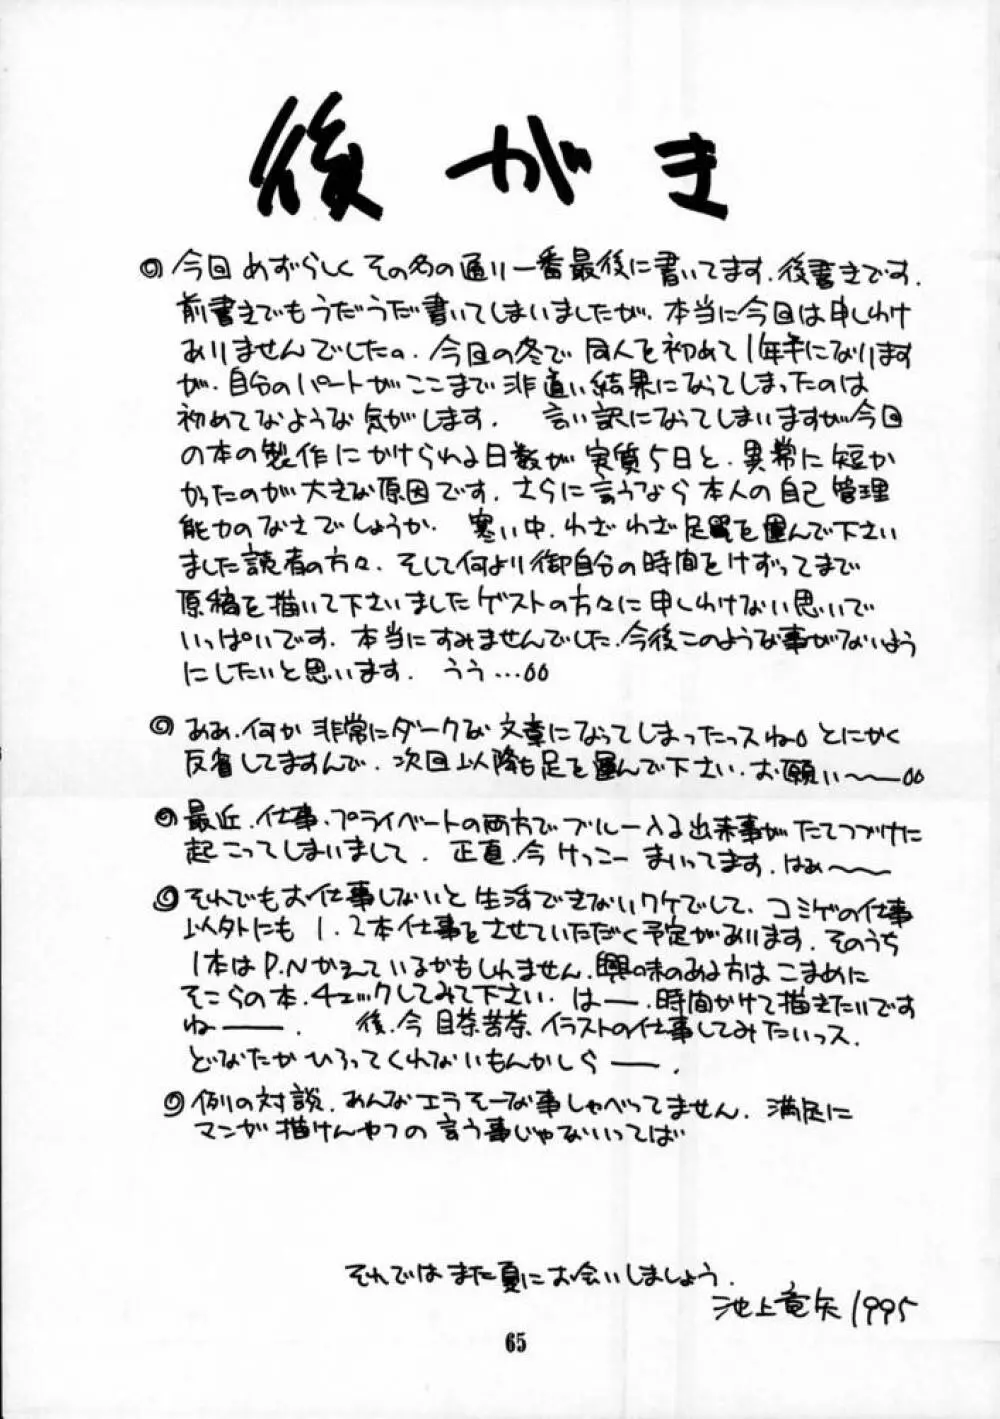 後がき
◎今回めずらしくその名の通り一番最後に書いてます.後書きです.
前書きでもうだうだ書いてしまいましたが、本当に今回は申しわけ
ありませんでしたの.今回の冬で同人を初めて1年半になります
が.自分のパートがここまで非道い結果になってしまったのは
初めてなような気がします. 言い訳になってしまいますが今回
の本の製作にかけられる日数が実質5日と.異常に短か
かったのが大きな原因です.さらに言うなら本人の自己管理
能力のなさでしょうか. 寒い中.わざわざ足を運んで下さい
ました読者の方々.そして何より御自分の時間をけずってまで
原稿を描いて下さいましたゲストの方々に申しわけない思いで
いっぱいです.本当にすみませんでした.今後このような事がないよう
にしたいと思います. うう…00
◎ああ.何か非常にダークな文章になってしまったっスね。とにかく
反省してますんで.次回以降も足を運んで下さい.お願い〜—00
◎最近.仕事.プライベートの両方でブルー入る出来事がたてつづけに
起こってしまいまして.正直.今けっこーまいってます.はあ〜〜
◎それでもお仕事しないと生活できないワケでして.コミケの仕事
以外にも1.2本仕事をさせていただく予定があります.そのうち
1本はP.Nかえているかもしれません.興味のある方はこまめに
そこらの本.チェックしてみて下さい.はー.時間かけて描きたいです
ねー. 後.今目茶苦茶.イラストの仕事してみたいっス.
どなたかひろってくれないもんかしらー.
◎例の対談.あんなエラそーな事しゃべってません.満足に
マンガ描けんやつの言う事じゃないってば
それではまた夏にお会いしましょう.
池上竜矢1995
65